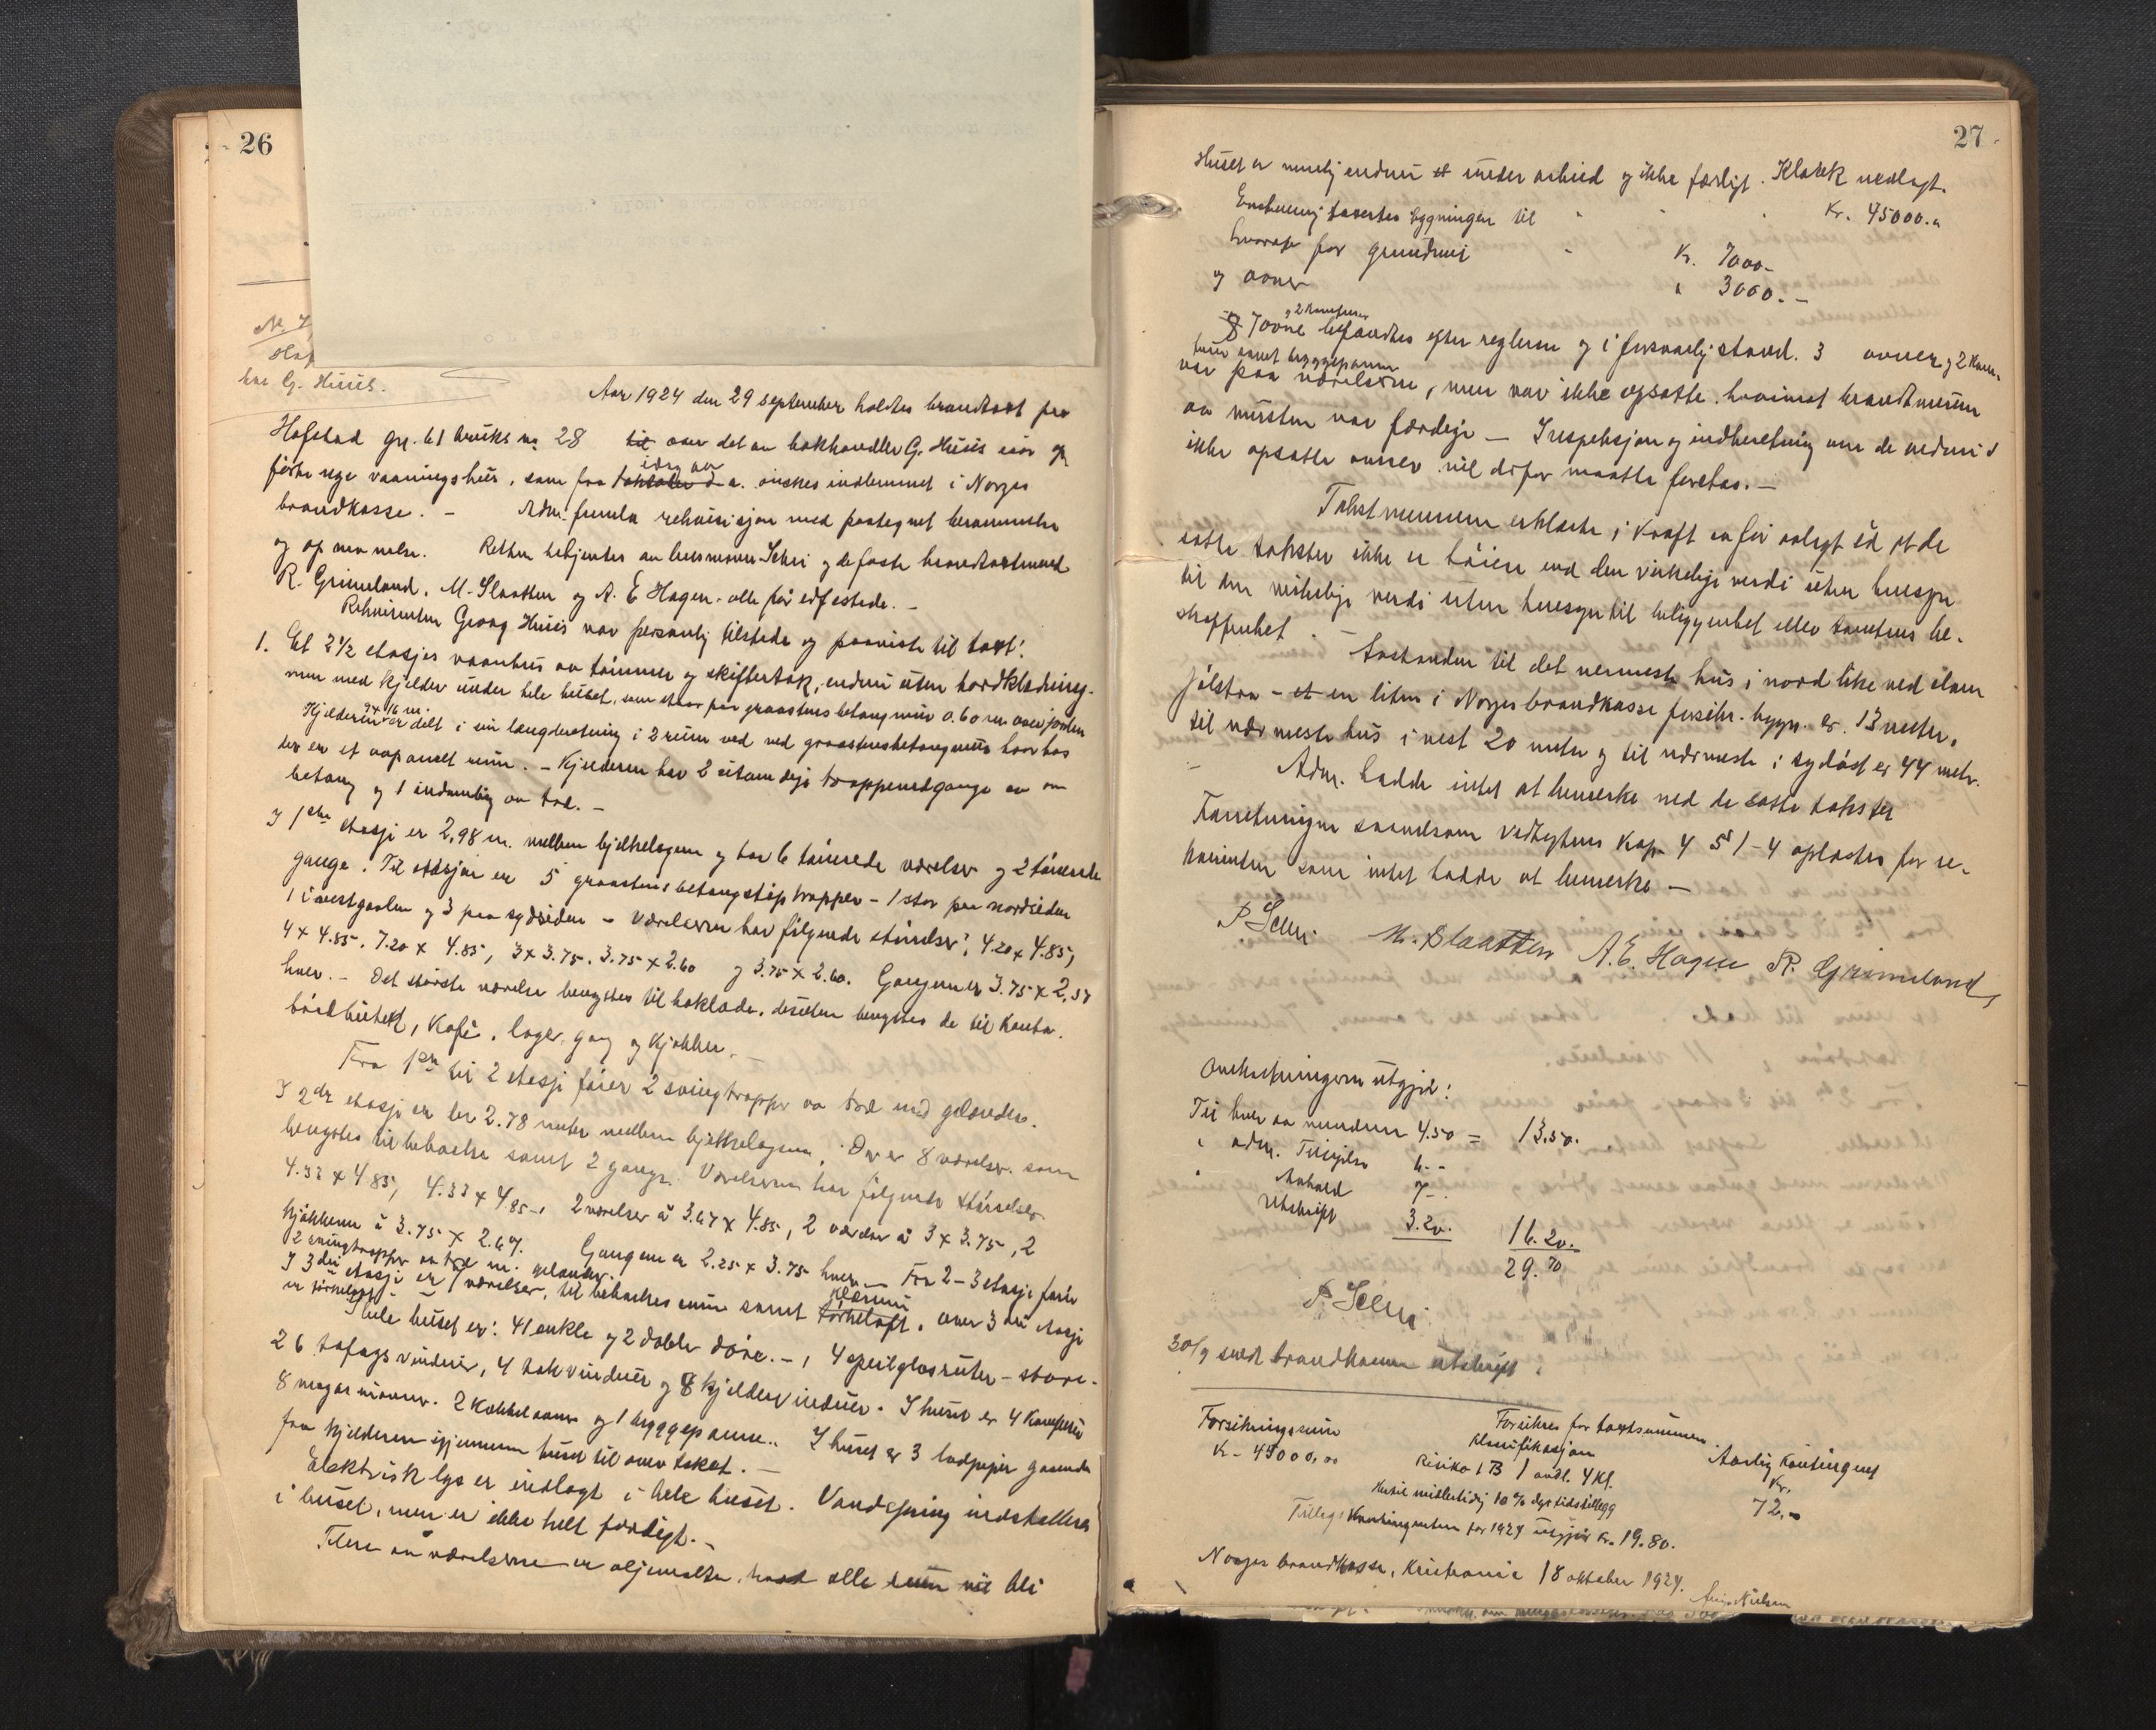 26
N. 7
Hof
hos G. Huus.
Aar 1924 den 29 september holdtes brandtaxt paa
Hofstad gr. 61 bruks no 28 til over det av bokhandler G. Huus
første nye vaaningshus, som fra idag av ønskes indlemmet i Norges
brandkasse. – Adm. fremla rekvisisjon med paategnet berammelse
og opnevnelse. Retten betjentes av lensmann Seim og de faste brandtaxtmænd
R. Grimeland, M. Slaatten og A. E. Hagen - alle før edfestede. –
Rekvirenten Georg Huus var personlig tilstede og paaviste til taxt:
1. Et 2 1/2 etasjes vaanhus av tømmer og skifertak, endnu uten bordklædning
men med kjelder under hele huset, som staar paa graastensbetongmur 0.60 m. over jorden
9 x 16 m.
Kjelderen er delt i sin længderetning i 2 rum ved graastensbetongmur
der er et avpanelt rum. – Kjelderen har 2 utvendige trappenedgange av
betong og 1 indvendig av træ. –
I 1ste etasje er 2,98 m. mellem bjelkelagene og har 6 værelser og 2
gange. Til etasjen er 5 graastensbetongstøptrapper – 1 stor paa nordsiden
1 i vestgavlen og 3 paa sydsiden – Værelserne har følgende størrelser: 4.20 x 4.85,
4 x 4.85, 7.20 x 4.85, 3 x 3.75, 3.75 x 2.60 og 3.75 x 2.60. Gangene er 3.75 x 2,57
hver. – Det største værelse benyttes til boklade, desuten benyttes de til kontor,
kafé, lager, gang og kjøkken. –
Fra 1ste til 2 etasje fører 2 svingtrapper av træ med gelænder.
I 2den etasje er der 2.78 meter mellem bjelkelagene. Der er 8 værelser som
benyttes til beboelse samt 2 gange. Værelserne har følgende størrelser
4.33 x 4.85, 4.33 x 4.85, 2 værelser á 3.67 x 4.85, 2 værelser á 3 x 3.75, 2
kjøkkener á 3.75 x 2.67. Gangene er 2.25 x 3.75 hver. – Fra 2–3 etasje fører
2 svingtrapper av træ m. gelænder.
I 3die etasje er 7 værelser, til beboelsesrum samt klærum tørkeloft, over 3die etasje
er tørkeloft.
I hele huset er: 41 enkle og 2 doble døre. –, 4 speilglasruter – store.
26 tofags vinduer, 4 takvinduer og 8 kjeldervinduer. I huset er 4 komfurer
8 magasinovner. 2 kakkelovner og 1 bryggepanne.. I huset er 3 lodpiper gaaende
fra kjelderen igjennem huset til over taket. –
Elektrisk lys er indlagt i hele huset. Vandspring installeres
i huset, men er ikke helt færdigt. –
Flere av værelserne er oljemalte, alle rum vil bli
27
Huset er nemlig endnu under arbeid og ikke færdigt. Kloakk nedlagt.
Enstemmig taxertes bygningen til Kr. 45000.-
hvorav for grundmur Kr. 7000-
og ovner " 3000.-
og 2 komfurer
8 7 ovne befandtes efter reglerne og i forsvarlig stand. 3 ovner og 2 kom-
furer samt bryggepanne
var paa værelserne, men var ikke opsatte, hvorimot brandmurene
av mursten var færdige – Inspeksjon og indberetning om de endnu
ikke opsatte ovner vil derfor maatte foretas. –
Takstmennene erklærte i kraft av før avlagt ed at de
satte takster ikke er høiere end den virkelige verdi uten hensyn
til den virkelige verdi uten hensyn til beliggenhet eller tomtens be-
skaffenhet. – Avstanden til det nermeste hus i nord like ved elven
Jølstra – en liten i Norges brandkasse forsikr. bygn. er 13 meter.
til nærmeste hus i vest 20 meter og til nærmeste i sydøst er 44 metr.
– Adm. hadde intet at bemerke ved de satte takster
Forretningen saavelsom vedtegtens kap 4 § 1–4 oplæstes for re-
kvirenten som intet hadde at bemerke –
P. Seim M. Slaatten A. E. Hagen R. Grimeland
Omkostningerne utgjør:
Til hver av mændene 4.50 = 13.50.
" adm. 6.-
" 7-
Utskrift 3.20. 16.20.
29.70
P. Seim
30/9 sendt brandkassen utskrift.
Forsikringssum
Kr - 45000,00
Forsikres for taxtsummen.
Klassifikasjon
Risiko 1 B 1 avdl. 4 kl.
Hertil midlertidig 10 % dyrtidstillegg
Aarlig Kontingent
Kr.
72,-
Tillegs kontingenten for 1924 utgjør kr. 19.80.
Norges brandkasse, Kristiania 18 oktober 1924.